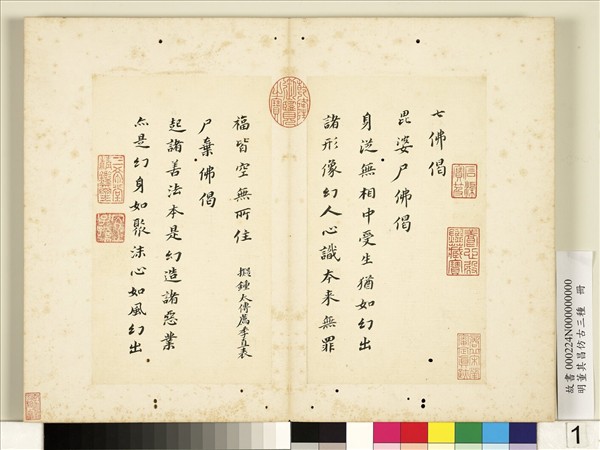 七佛偈
毘婆尸佛偈
身從無相中受生猶如幻出
諸形像幻人心識本来無罪
福皆空無所住 擬鍾太傅薦季直表
尸棄佛偈
起諸善法本是幻造諸惡業
亦是幻身如聚沫心如風幻出
故書 000224N000000000
明董其昌仿古三種 冊
1